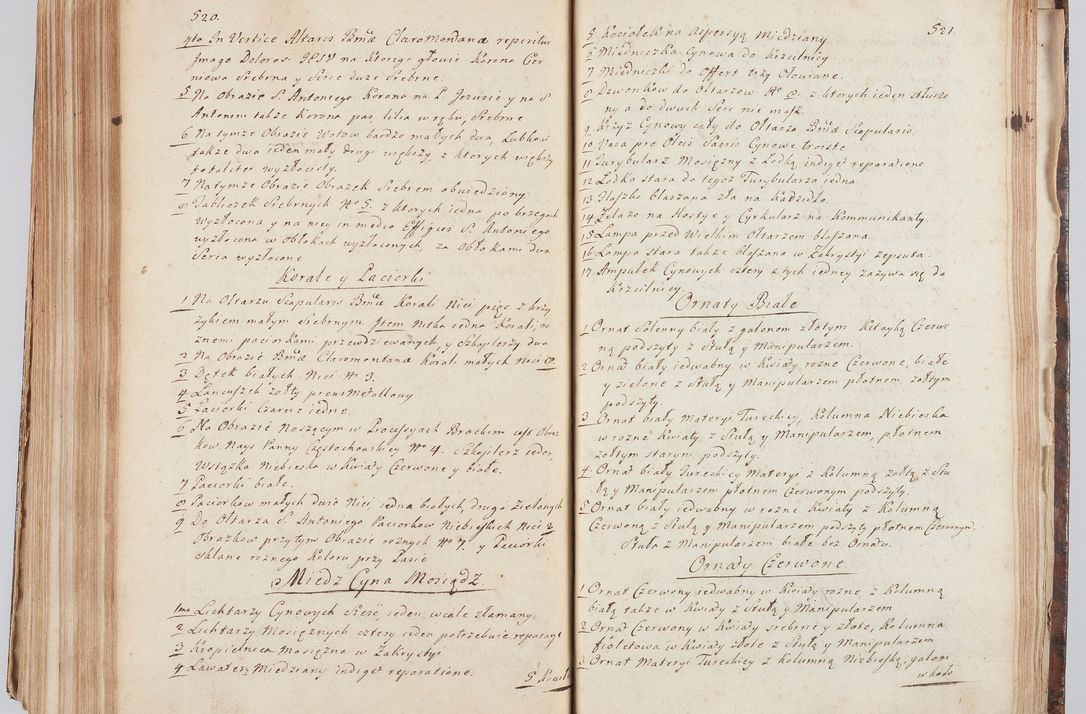 520.
4to In Vertice Altaris Bmæ Claromontanæ reperitur
Imago Dolorosi JESU na ktorego głowie Korona Cer
niowa Srebrna y Serce duże Srebrne.
5 Na Obrazie S. Antoniego Korona na P. Jezusie y na S
Antonim także Korona pas, lilia w ręku, Srebrne
6 Na tymże Obrazie Wotow bardzo małych dwa, Lubkow
także dwa ieden mały drugi większy z ktorych większy
totaliter wyzłocisty.
7 Na tymże Obrazie Obrazek Srebrem obwiedziony.
8 Tabliczek Srebrnych No 5. z ktorych iedna po brzegach
wyzłocona y na niey in medio Effigies S. Antoniego
wyzłocona w Obłokach wyzłoconych, za Obłokami dwa
Serca wyzłocone
Korale y Paciorki
1 Na Ołtarzu Scapularis Bmæ Korali Nici pięć z krzy
żykiem małym Srebrnym Item Nitka iedna Korali, ro
żnemi paciorkami przewdziewanych, y Szkaplerzy dwa
2 Na Obrazie Bmæ Claromontanæ Korali małych Nici 8.
3 Dętek białych Nici No 3.
4 Lancuszek żółty
5 Paciorki Czarne iedne.
6 Na Obrazie Noszącym w Processyach Brachim
kow Nays Panny Częstochowskiey No 4. Szkaplerz ieden,
Wstążka Niebieska w Kwiaty Czerwone y białe.
7 Paciorki białe.
8 Paciorkow małych dwie Nici, iedna białych, druga Zielonych
9 Do Ołtarza S. Antoniego Paciorkow Niebieskich Nici 2
Obrazkow przy tym Obrazie rożnych No 7. y Paciorki
Sklane rożnego Koloru przy Pasie
Miedz Cyna Mosiądz.
1mo Lichtarzy Cynowych Sześć, ieden wcale złamany.
2 Lichtarzy Mosiężnych cztery ieden potrzebuie reparacyi
3 Kropielnica Mosiężna w Zakrystyi
4 Lawaterz Miedziany indiget reparatione.
5 Kociół
521.
5 Kociołek na Aspersyą Miedziany
6 Miedniczka Cynowa do Krzcilnicy
7 Miedniczki do Offert trzy Ołowiane.
8 Dzwonkow do Ołtarzow No 8. z ktorych ieden stłuczo
ny a do dwuch Serc nie masz.
9 Krzyż Cynowy cały do Ołtarza Bmæ Scapularis.
10 Vasa pro Oleis Sacris Cynowe troiste
11 Turybularz Mosiężny z Łodką indiget reparatione
12 Łodka stara do tegoż Turybularza iedna.
13 Flaszka blaszana zła na Kadzidło.
14 Zelazo na Hostye y Cyrkularz na Kommunikanty.
15 Lampa przed Wielkim Ołtarzem blaszana.
16 Lampa stara także blaszana w Zakrystyi zepsuta.
17. Ampułek Cynowych cztery z tych iedney zażywa się do
Krzcilnicy.
Ornaty Białe
1 Ornat Solenny biały z galonem złotym Kitayką Czerwo
ną podszyty z Stułą y Manipularzem.
2 Ornat biały iedwabny w Kwiaty rożne Czerwone, białe
y zielone z Stułą y Manipularzem płotnem żołtym
podszyty.
3 Ornat biały materyi Tureckiey, Kolumna Niebieska
w rożne Kwiaty z Stułą y Manipularzem, płotnem
żołtym starym podszyty.
4. Ornat biały Tureckiey Materyi z Kolumną żołtą z Stu
łą y Manipularzem płotnem Czerwonym podszyty.
5 Ornat biały iedwabny w rożne Kwiaty z Kolumną
Czerwoną z Stułą y Manipularzem podszyty płotnem Czerwonym.
Stuła z Manipularzem białe bez Ornatu.
Ornaty Czerwone.
1 Ornat Czerwony iedwabny w Kwiaty rożne, z Kolumną
białą także w Kwiaty z Stułą y Manipularzem
2 Ornat Czerwony w Kwiaty srebrne y złote, Kolumna
fioletowa w Kwiaty złote z Stułą y Manipularzem
3 Ornat Materyi Tureckiey z Kolumną Niebieską, galon
w koło